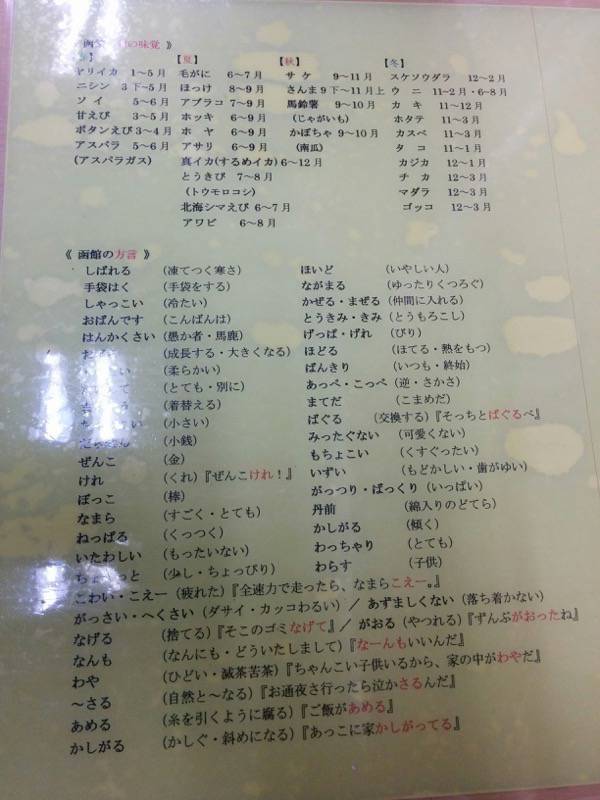 の味覚 》
【夏】 【秋】 【冬】
ヤリイカ 1〜5月 毛がに 6〜7月 サケ 9〜11月 スケソウダラ 12〜2月
ニシン 3下〜5月 ほっけ 8〜9月 さんま 9下〜11月上 ウニ 11〜2月・6〜8月
ソイ 5〜6月 アブラコ 7〜9月 馬鈴薯 9〜10月 カキ 11〜12月
甘えび 3〜5月 ホッキ 6〜9月 (じゃがいも) ホタテ 11〜3月
ボタンえび 3〜4月 ホヤ 6〜9月 かぼちゃ 9〜10月 カスベ 11〜3月
アスパラ 5〜6月 アサリ 6〜9月 (南瓜) タコ 11〜1月
(アスパラガス) 真イカ(するめイカ) 6〜12月 カジカ 12〜1月
とうきび 7〜8月 チカ 12〜3月
(トウモロコシ) マダラ 12〜3月
北海シマえび 6〜7月 ゴッコ 12〜3月
アワビ 6〜8月
《 函館の方言 》
しばれる (凍てつく寒さ) ほいど (いやしい人)
手袋はく (手袋をする) ながまる (ゆったりくつろぐ)
しゃっこい (冷たい) かぜる・まぜる (仲間に入れる)
おばんです (こんばんは) とうきみ・きみ (とうもろこし)
はんかくさい (愚か者・馬鹿) げっぱ・げれ (びり)
(成長する・大きくなる) ほどる (ほてる・熱をもつ)
(柔らかい) ばんきり (いつも・終始)
(とても・別に) あっぺ・こっぺ (逆・さかさ)
(着替える) まてだ (こまめだ)
(小さい) ばぐる (交換する)『そっちとばぐるべ』
(小銭) みったぐない (可愛くない)
ぜんこ (金) もちょこい (くすぐったい)
けれ (くれ)『ぜんこけれ!』 いずい (もどかしい・歯がゆい)
ぼっこ (棒) がっつり・ばっくり (いっぱい)
なまら (すごく・とても) 丹前 (綿入りのどてら)
ねっぱる (くっつく) かしがる (傾く)
いたわしい (もったいない) わっちゃり (とても)
(少し・ちょっぴり) わらす (子供)
こわい・こえー (疲れた)『全速力で走ったら、なまらこえー。』
がっさい・へくさい (ダサイ・カッコわるい) / あずましくない (落ち着かない)
なげる (捨てる)『そこのゴミなげて』 / がおる (やつれる)『ずんぶがおったね』
なんも (なんにも・どういたしまして)『なーんもいいんだ』
わや (ひどい・滅茶苦茶)『ちゃんこい子供いるから、家の中がわやだ』
〜さる (自然と〜なる)『お通夜さ行ったら泣かさるんだ』
あめる (糸を引くように腐る)『ご飯があめる』
かしがる (かしぐ・斜めになる)『あっこに家かしがってる』